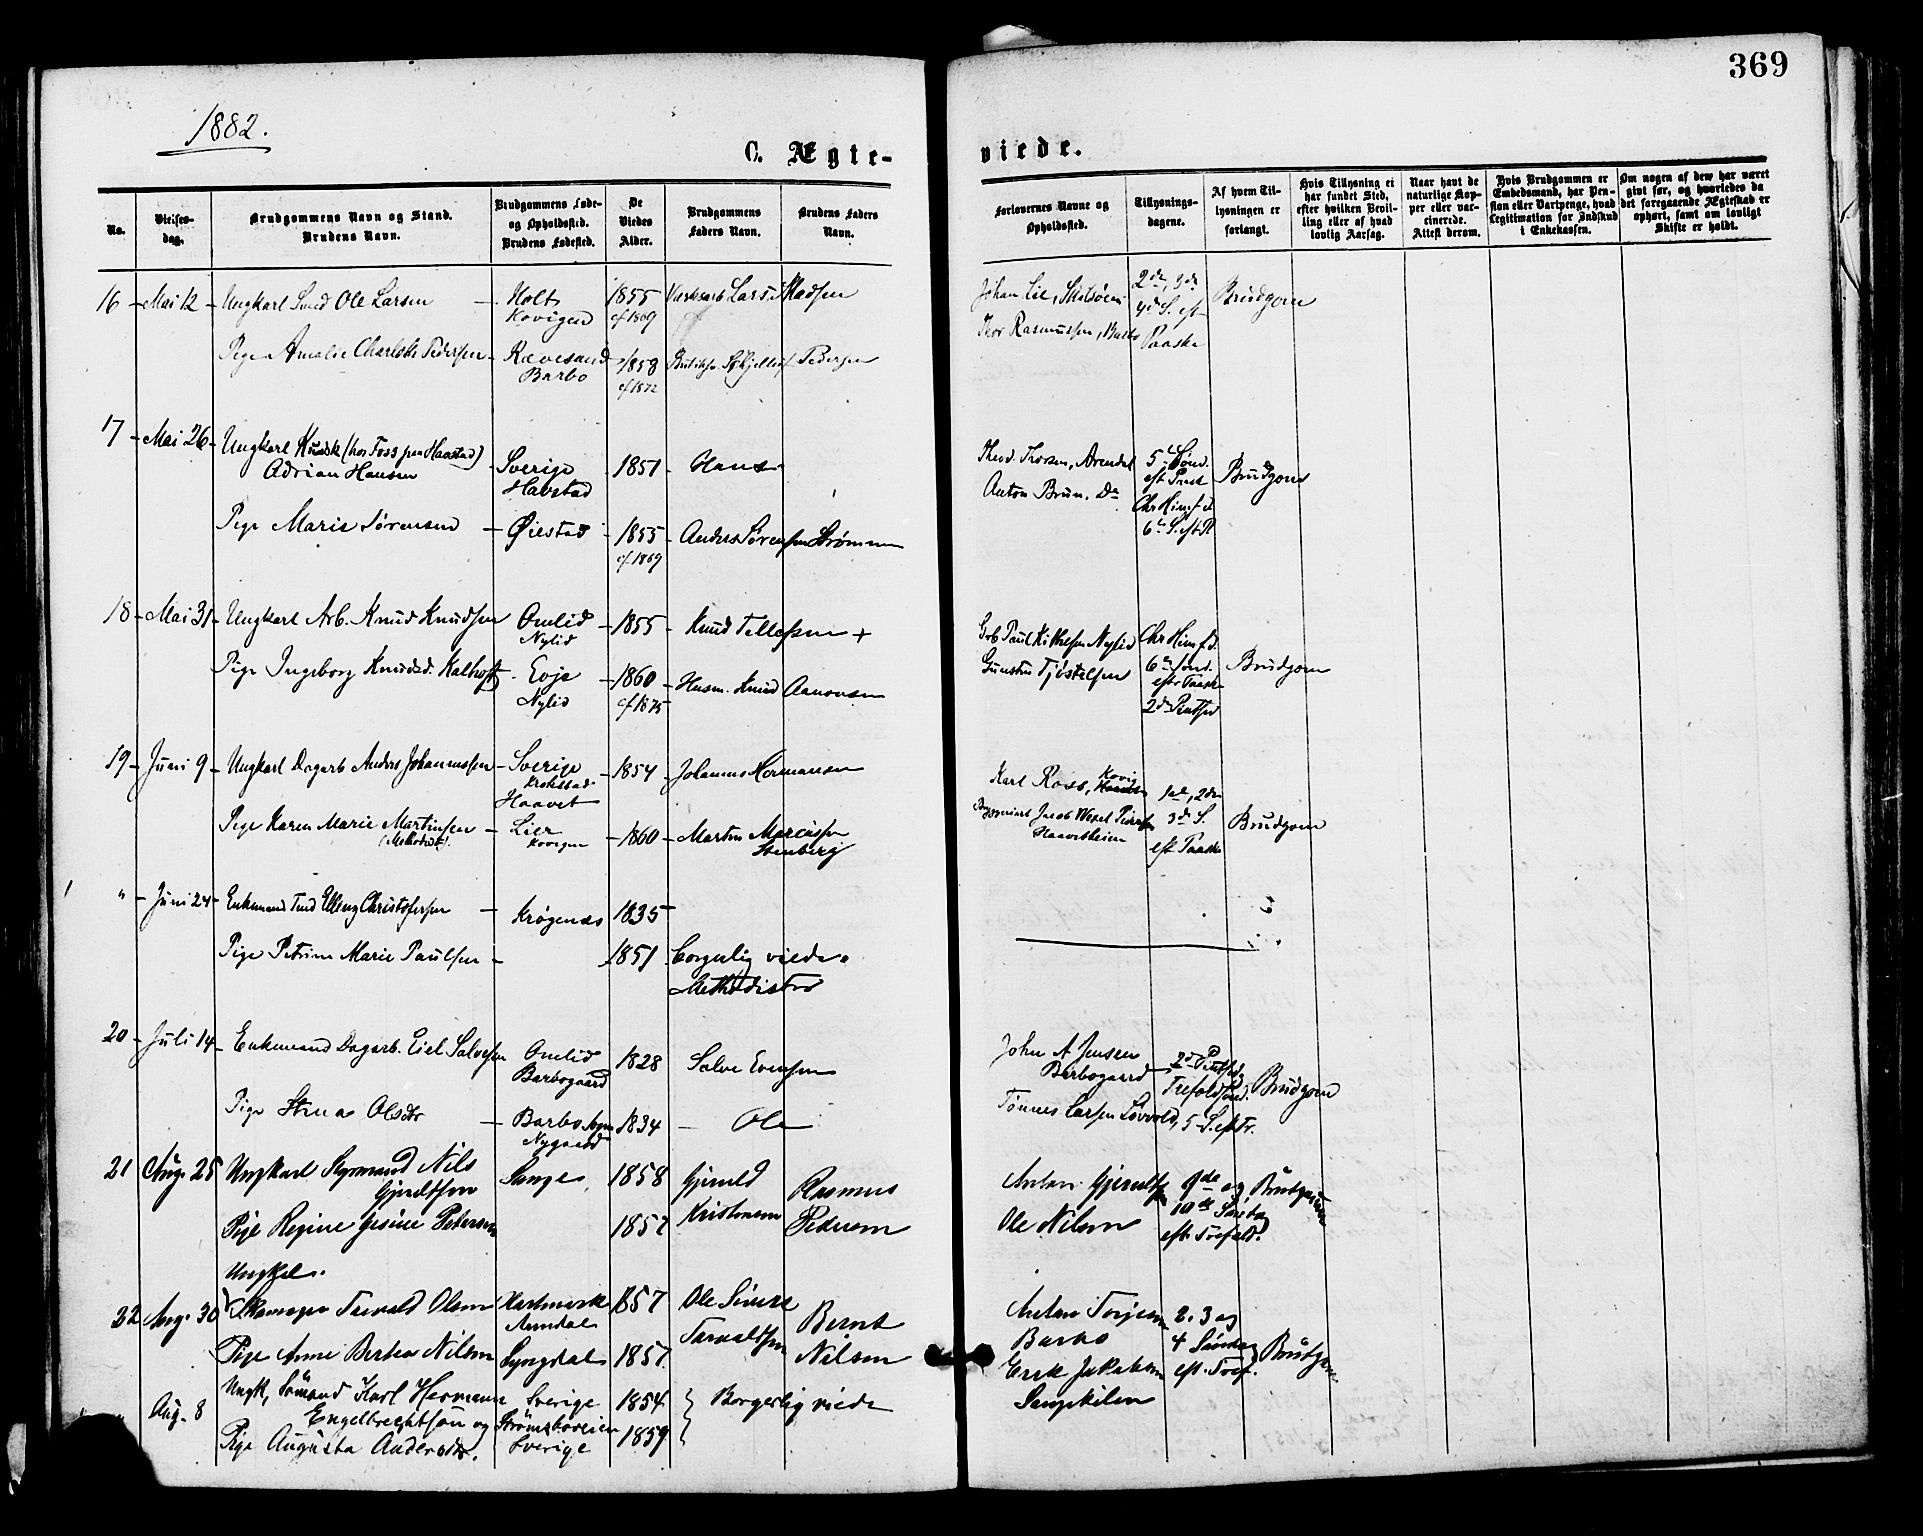 369
1882.
C. Ægte-
viede.
No.
Vielses-
dag.
Brudgommens Navn og Stand.
Brudens Navn.
Brudgommens Føde-
og Opholdssted.
Brudens Fødested.
De
Viedes
Alder.
Brudgommens
Faders Navn.
Brudens Faders
Navn.
Forlovernes Navne og
Opholdssted.
Tillysnings-
dagene.
Af hvem Til-
lysningen er
forlangt.
Hvis Tillysning ei
har fundet Sted,
efter hvilken Bevil-
ling eller af hvad
lovlig Aarsag.
Naar havt de
naturlige Kop-
per eller vac-
cinerede.
Attest derom.
Hvis Brudgommen er
Embedsmand, har Pen-
sion eller Vartpenge, hvad
Legitimation for Indskud
i Enkekassen.
Om nogen af dem har været
givt før, og hvorledes da
det foregaaende Ægteskab er
ophørt, samt om lovligt
Skifte er holdt.
16 Mai 12 Ungkarl Smed Ole Larsen Holt 1855 Lars Madsen
Kovigen cf 1869
Pige Amalie Charlotte Pedersen Rævesand 1858 Pedersen
Barbo cf 1872
Johan Lie, 2de, 3de
4de S. eft Brudgom
Thor Rasmussen, Barbo Paaske
17 Mai 26 Ungkarl Kudsk (hos Foss paa Haavstad)
Adrian Hansen Sverige 1851 Hans
Havstad
Pige Marie Sørensen Øiestad 1855 Anders Sørensen Strømmen
cf 1869
Theod. Thorsen, Arendal 5te Sønd.
Anton Brun. Do eft Paask Brudgom
Chr Himf d
6te S. eft P
18 Mai 31 Ungkarl Arb. Knud Knudsen Omlid 1855 Knud Tellefsen +
Nylid
Pige Ingeborg Knudsd. Kalhoft Evje 1860 Husm. Knud Aanonsen
Nylid cf 1875
Paul Kittelsen Nylid Chr Himf d.
Gunstein Tjöstelsen 6te Sønd. Brudgom
eftr Paaske
2d Pintsed
19 Juni 9 Ungkarl Dagarb Anders Johannessen Sverige 1854 Johannes Hermansen
Krokstad
Haavet
Pige Karen Marie Martinsen Lier 1860 Martin Marcussen
(Methodist). Kovigen Stenberg
Karl Ross, Kovig 1ste, 2den
Jacob Wexel Pedersen 3de S. Brudgom
Haavetheien eft Paaske
" Juni 24 Enkemand Elling Christofersen Krøgenæs 1835
Pige Petrine Marie Paulsen 1851 Borgerlig viede.
Methodister
20 Juli 14 Enkemand Dagarb. Eiel Salvesen Omlid 1828 Salve Evensen
Barbogaard
Pige Stina Olsdtr Barbo 1834 Ole
Nygaard
John A Jensen 2d Pintsed
Barbogaard Trefoldsønd. Brudgom
Tønnes Larsen Løvvold, 5 S. eft Tr.
21 Aug. 25 Ungkarl Styrmand Nils Songe 1858 Gjeruld Rasmus
Gjeruldsen Kristensen Pedersen
Pige Regine Gesine Petersen 1857
Anton Gjeruldsen 9de og Brudgom
Ole Nilsen 10de Søndag
eft. Trefold.
Ungkl.
22 Aug. 30 Skomager Tarvald Olsen Hartmark 1857 Ole Sivert Bernt
Arendal Tarvaldsen Nilsen
Pige Anne Bertea Nilsen Lyngdal 1857
Anton Torjesen 2. 3 og
Barbo 4 Søndag Brudgom
Erik Jakobsen eft. Tref.
Songekilen
" Aug. 8 Ungk, Sömand Karl Hermann Sverige 1854 Borgerlig viede
Engelbrechtson og Strömsboveien
Pige Augusta Andersdtr. Sverige 1859